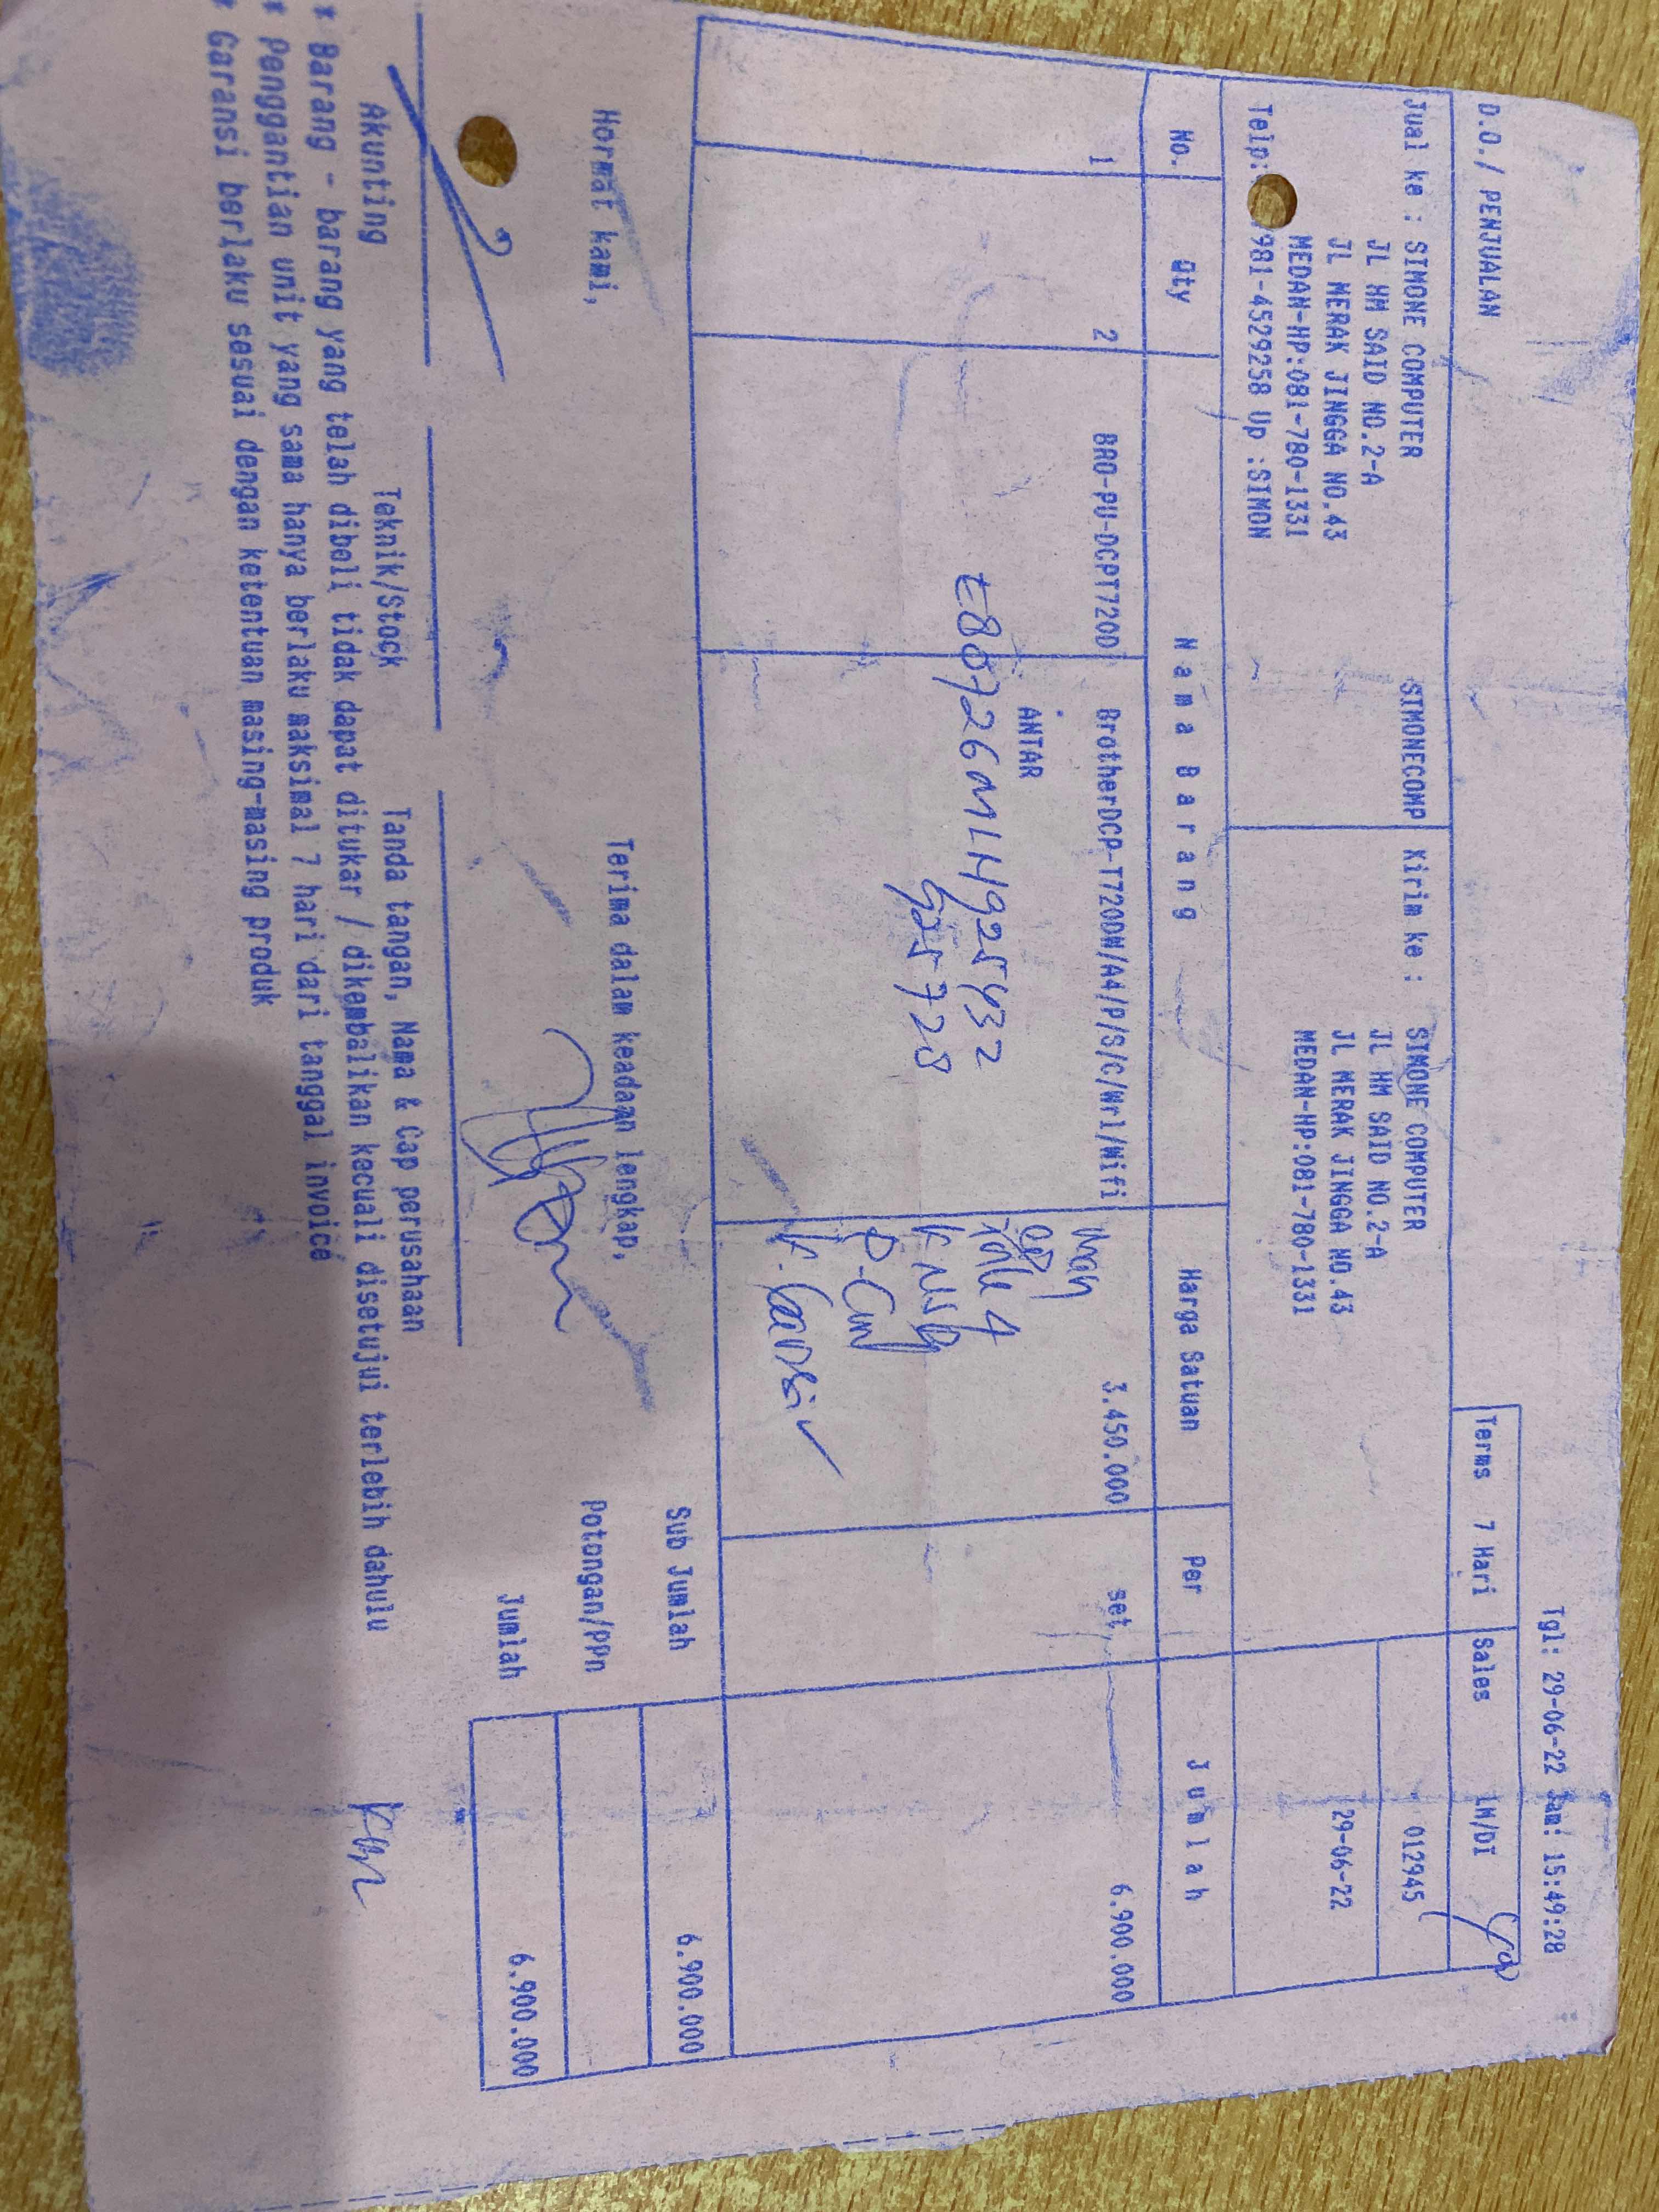 Tgl: 29-06-22 Jam: 15:49:28
D.O./ PENJUALAN
Terms 7 Hari Sales LM/DI
Jual ke : SIMONE COMPUTER SIMONECOMP Kirim ke : SIMONE COMPUTER 012945
JL HM SAID NO.2-A JL HM SAID NO.2-A
JL MERAK JINGGA NO.43 JL MERAK JINGGA NO.43 29-06-22
MEDAN-HP:081-780-1331 MEDAN-HP:081-780-1331
Telp: 981-4529258 Up :SIMON
No. Qty Nama Barang Harga Satuan Per Jumlah
1 2 BRO-PU-DCPT720D BrotherDCP-T720DW/A4/P/S/C/Wrl/Wifi 3.450.000 set 6.900.000
ANTAR
Sub Jumlah 6.900.000
Hormat kami, Terima dalam keadaan lengkap, Potongan/PPn
Jumlah 6.900.000
Akunting Teknik/Stock Tanda tangan, Nama & Cap perusahaan
* Barang - barang yang telah dibeli tidak dapat ditukar / dikembalikan kecuali disetujui terlebih dahulu
* Penggantian unit yang sama hanya berlaku maksimal 7 hari dari tanggal invoice
* Garansi berlaku sesuai dengan ketentuan masing-masing produk